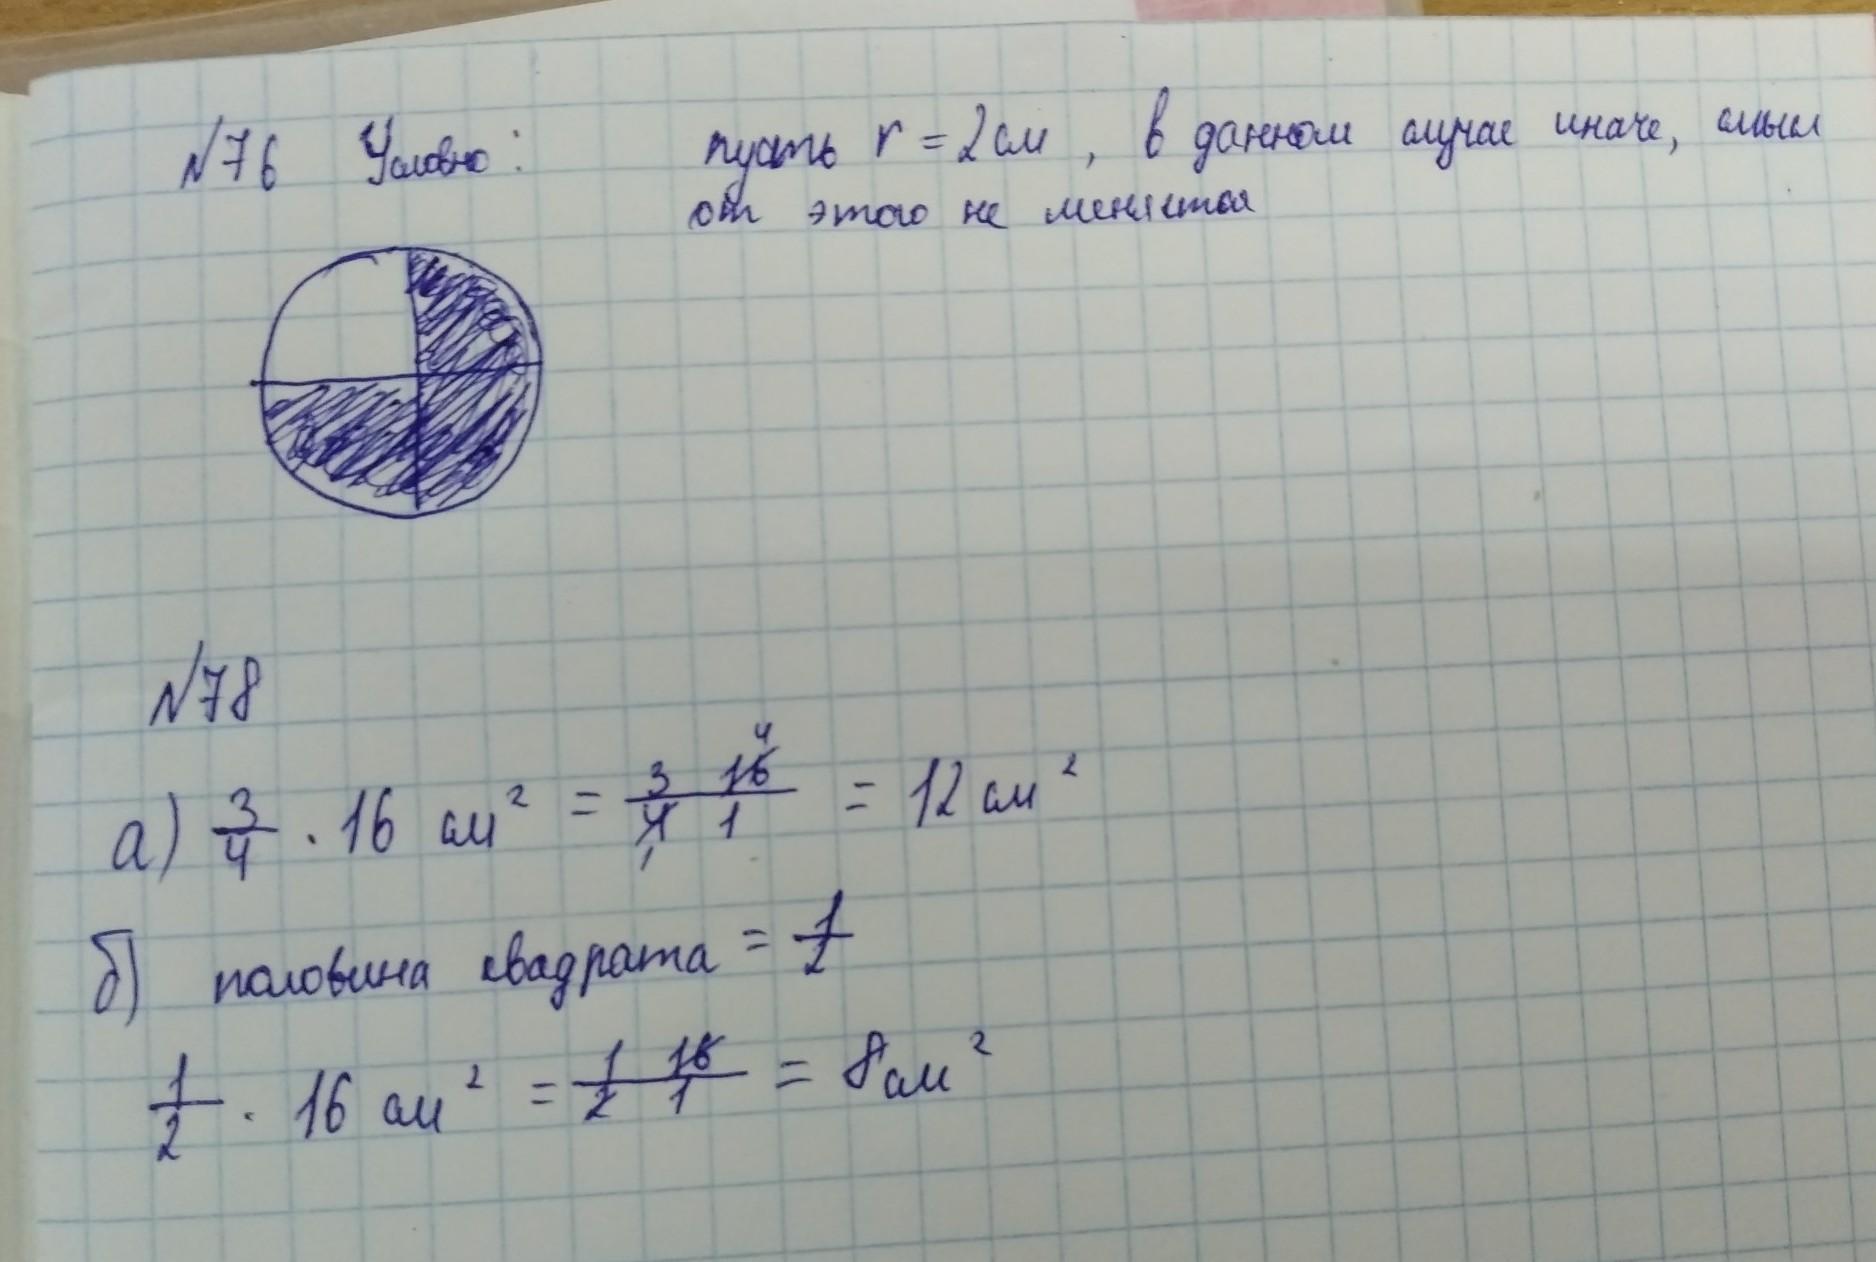 №76 Условно: пусть r = 2 см, в данном случае иначе, смысл
от этого не меняется
№78
а) 3/4 · 16 см² = 3 16/4 1 = 12 см²
4
1
б) половина квадрата = 1/2
1/2 · 16 см² = 1 16/2 1 = 8 см²